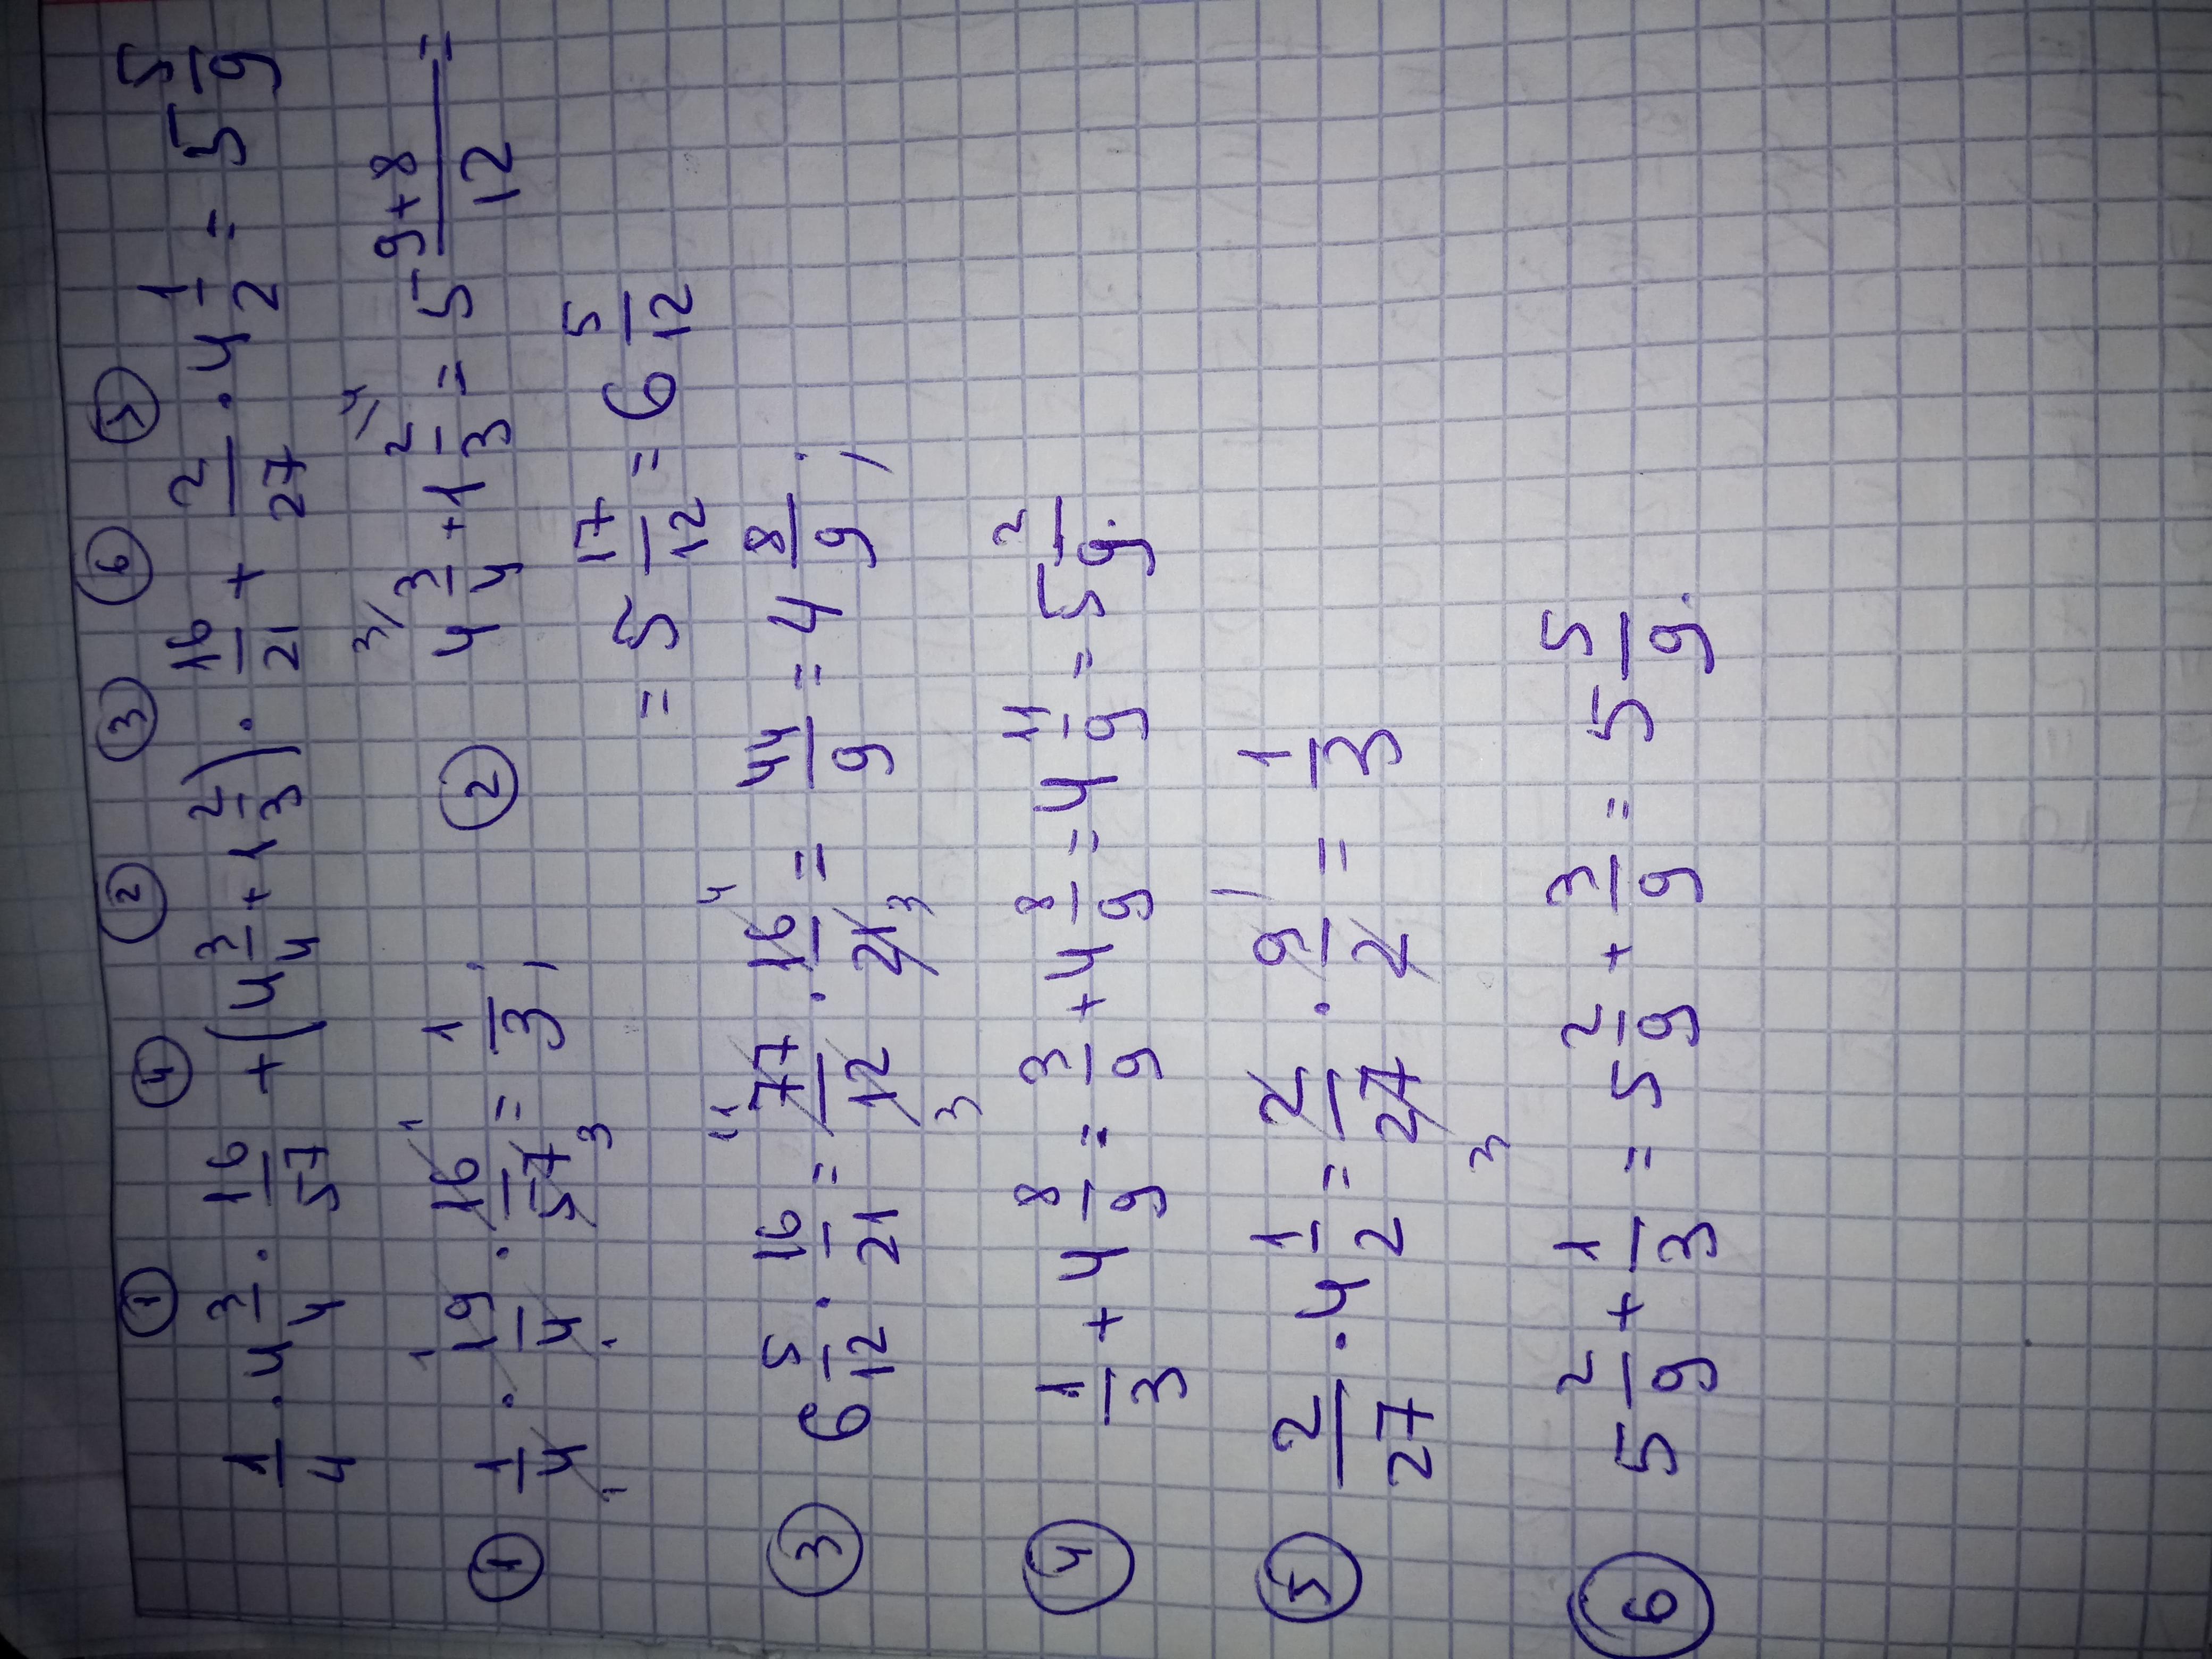 ① ④ ② ③ ⑥ ⑤
1/4 · 4 3/4 · 16/57 + (4 3/4 + 1 2/3) · 16/21 + 2/27 · 4 1/2 = 5 5/9
① 1/4 · 19/4 · 16/57 = 1/3 ; ② 4 3/4 + 1 2/3 = 5 (9+8)/12 =
= 5 17/12 = 6 5/12
③ 6 5/12 · 16/21 = 77/12 · 16/21 = 44/9 = 4 8/9 ;
④ 1/3 + 4 8/9 = 3/9 + 4 8/9 = 4 11/9 = 5 2/9.
⑤ 2/27 · 4 1/2 = 2/27 · 9/2 = 1/3
⑥ 5 2/9 + 1/3 = 5 2/9 + 3/9 = 5 5/9.